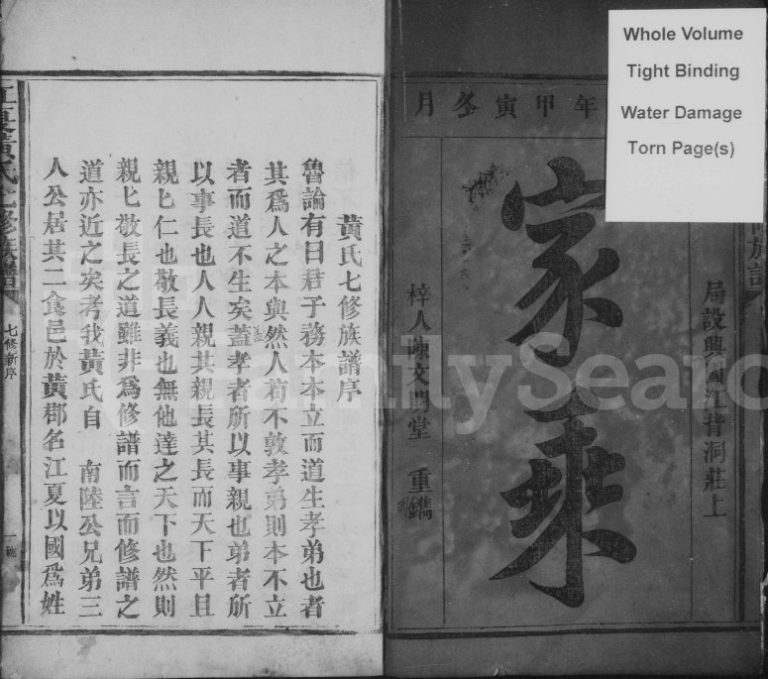 Whole Volume
Tight Binding
Water Damage
Torn Page(s)
年甲寅冬月
局設興國江背洞莊上
家乘
梓人陳文門堂 重鐫
黃氏七修族譜序
魯論有曰君子務本本立而道生孝弟也者
其爲人之本與然人苟不敦孝弟則本不立
者而道不生矣蓋孝者所以事親也弟者所
以事長也人人親其親長其長而天下平且
親匕仁也敬長義也無他達之天下也然則
親匕敬長之道雖非爲修譜而言而修譜之
道亦近之矣考我黃氏自 南陸公兄弟三
人公居其二食邑於黃郡名江夏以國爲姓
江夏黃氏七修族譜
七修新序
FamilySearch